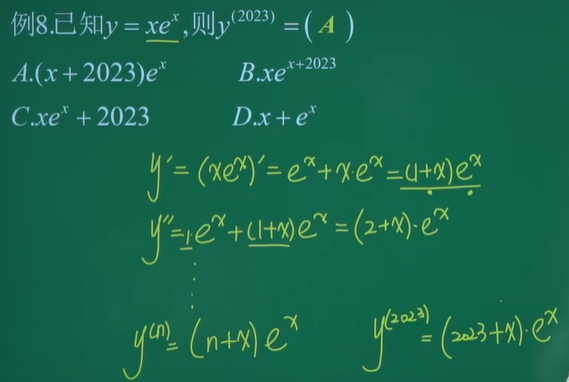 例8.已知y = xeˣ,则y⁽²⁰²³⁾ = ( A )
A.(x + 2023)eˣ B.xeˣ⁺²⁰²³
C.xeˣ + 2023 D.x + eˣ
y′ = (xeˣ)′ = eˣ + x·eˣ = (1+x)eˣ
y″ = 1·eˣ + (1+x)eˣ = (2+x)·eˣ
⋮
y⁽ⁿ⁾ = (n+x)eˣ y⁽²⁰²³⁾ = (2023+x)·eˣ